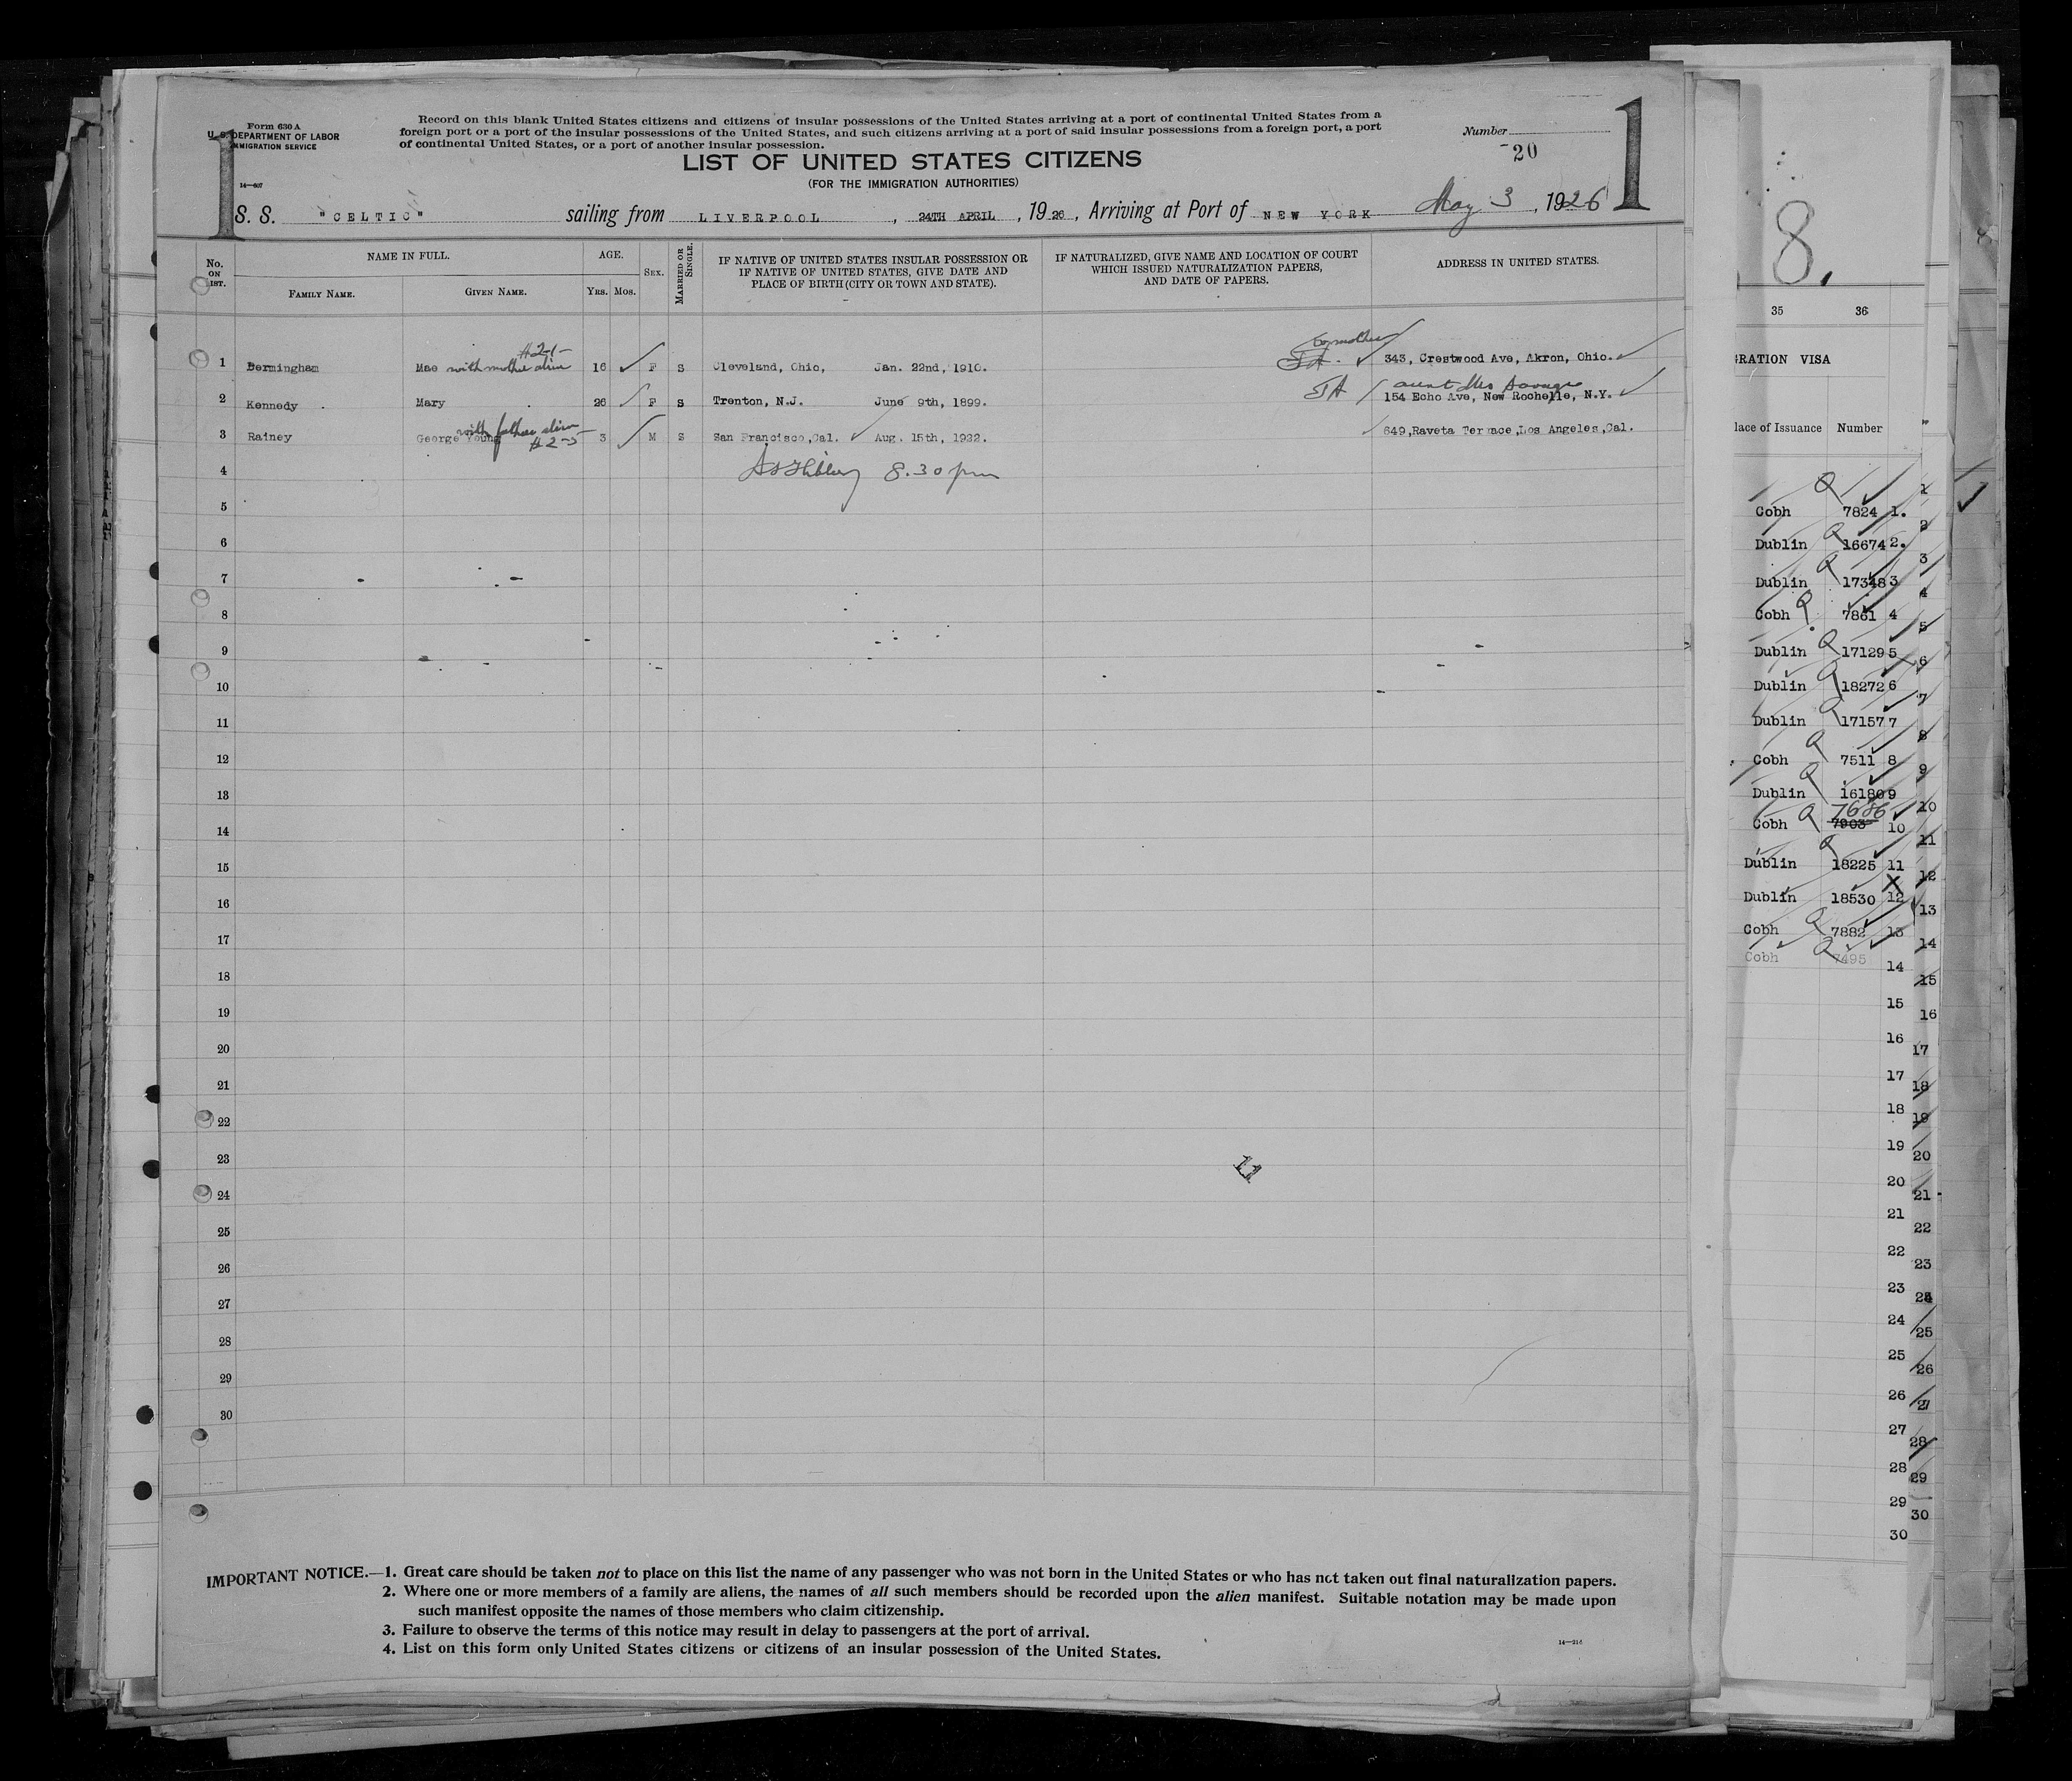 Form 630 A
U. S. DEPARTMENT OF LABOR
IMMIGRATION SERVICE
14—607
Record on this blank United States citizens and citizens of insular possessions of the United States arriving at a port of continental United States from a
foreign port or a port of the insular possessions of the United States, and such citizens arriving at a port of said insular possessions from a foreign port, a port
of continental United States, or a port of another insular possession.
Number
20
1
1
LIST OF UNITED STATES CITIZENS
(FOR THE IMMIGRATION AUTHORITIES)
S. S. "CELTIC" sailing from LIVERPOOL, 24TH APRIL, 1926, Arriving at Port of NEW YORK May 3, 1926
No. ON LIST.
NAME IN FULL.
FAMILY NAME.
GIVEN NAME.
AGE.
YRS. MOS.
SEX.
MARRIED OR SINGLE.
IF NATIVE OF UNITED STATES INSULAR POSSESSION OR
IF NATIVE OF UNITED STATES, GIVE DATE AND
PLACE OF BIRTH (CITY OR TOWN AND STATE).
IF NATURALIZED, GIVE NAME AND LOCATION OF COURT
WHICH ISSUED NATURALIZATION PAPERS,
AND DATE OF PAPERS.
ADDRESS IN UNITED STATES.
#2-1- to mother
1 Bermingham Mae with mother alien 16 F S Cleveland, Ohio, Jan. 22nd, 1910. 343, Crestwood Ave, Akron, Ohio.
aunt Mrs Savage
2 Kennedy Mary 26 F S Trenton, N.J. June 9th, 1899. 154 Echo Ave, New Rochelle, N.Y.
with father alien
3 Rainey George Young #2-5 3 M S San Francisco, Cal. Aug. 15th, 1922. 649, Raveta Terrace, Los Angeles, Cal.
4 8.30 pm
5
6
7
8
9
10
11
12
13
14
15
16
17
18
19
20
21
22
23
24
25
26
27
28
29
30
11
IMPORTANT NOTICE.—1. Great care should be taken not to place on this list the name of any passenger who was not born in the United States or who has not taken out final naturalization papers.
2. Where one or more members of a family are aliens, the names of all such members should be recorded upon the alien manifest. Suitable notation may be made upon
such manifest opposite the names of those members who claim citizenship.
3. Failure to observe the terms of this notice may result in delay to passengers at the port of arrival.
4. List on this form only United States citizens or citizens of an insular possession of the United States.
8.
35 36
GRATION VISA
lace of Issuance Number
Cobh 7824 1.
Dublin 16674 2.
Dublin 17348 3
Cobh 7861 4
Dublin 17129 5
Dublin 18272 6
Dublin 17157 7
Cobh 7511 8
Dublin 16180 9
7686
Cobh 7903 10
Dublin 18225 11
Dublin 18530 12
Cobh 7882 13
Cobh 7495 14
15
16
17
18
19
20
21
22
23
24
25
26
27
28
29
30
1
2
3
4
5
6
7
8
9
10
11
12
13
14
15
16
17
18
19
20
21
22
23
24
25
26
27
28
29
30